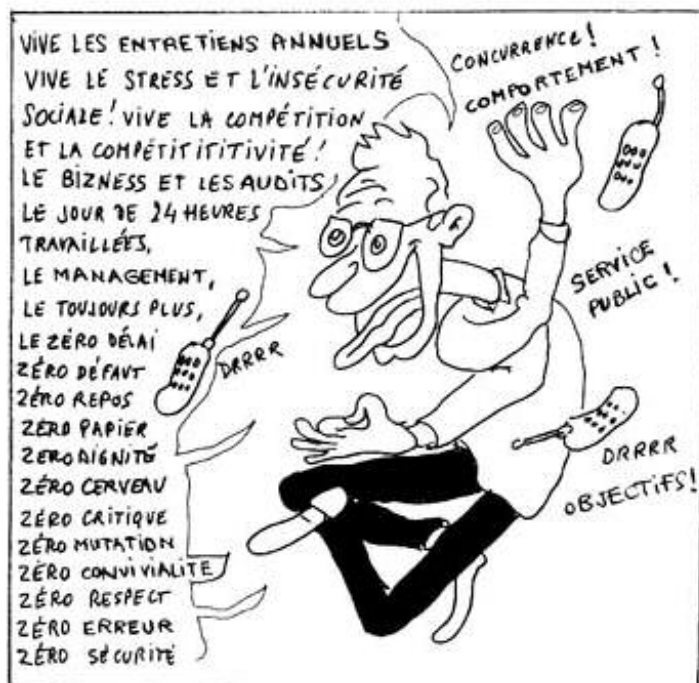 VIVE LES ENTRETIENS ANNUELS
VIVE LE STRESS ET L'INSÉCURITÉ
SOCIALE! VIVE LA COMPÉTITION
ET LA COMPÉTITITITIVITÉ!
LE BIZNESS ET LES AUDITS
LE JOUR DE 24 HEURES
TRAVAILLÉES,
LE MANAGEMENT,
LE TOUJOURS PLUS,
LE ZÉRO DÉLAI
ZÉRO DÉFAUT
ZÉRO REPOS
ZÉRO PAPIER
ZÉRO DIGNITÉ
ZÉRO CERVEAU
ZÉRO CRITIQUE
ZÉRO MUTATION
ZÉRO CONVIVIALITE
ZÉRO RESPECT
ZÉRO ERREUR
ZÉRO SÉCURITÉ
CONCURRENCE!
COMPORTEMENT!
SERVICE
PUBLIC!
DRRRR
DRRRR
OBJECTIFS!